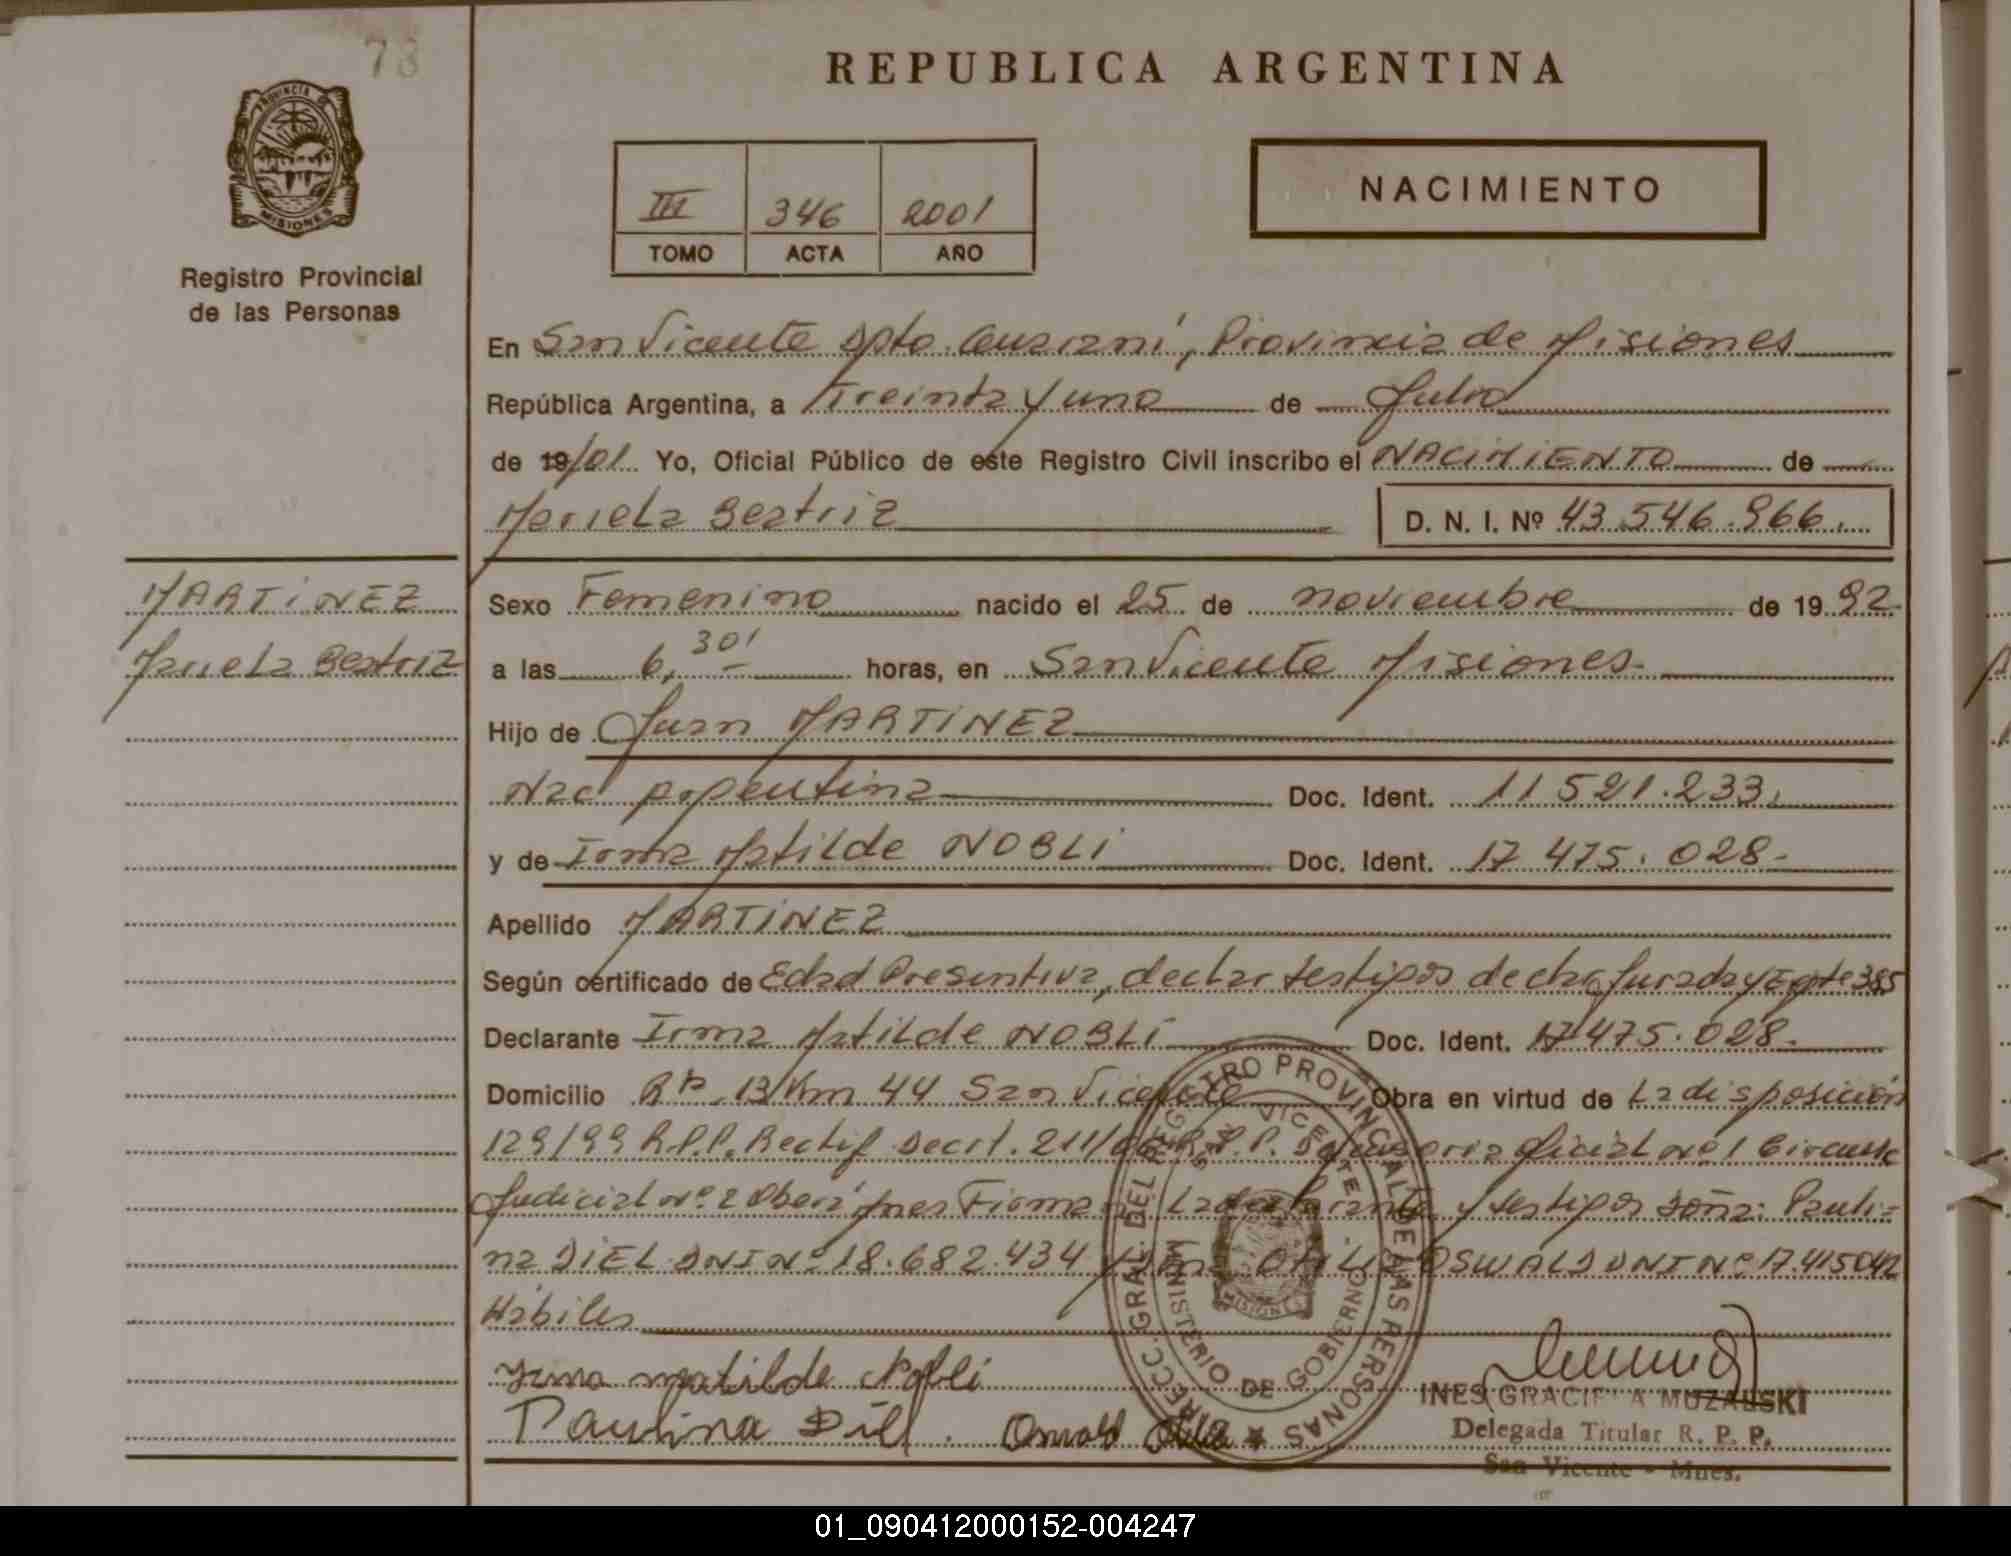 73
REPUBLICA ARGENTINA
PROVINCIA DE
MISIONES
Registro Provincial
de las Personas
III 346 2001
TOMO ACTA AÑO
NACIMIENTO
En San Vicente Dpto. Guaraní, Provincia de Misiones
República Argentina, a Treinta y uno de Julio
de 19/01 Yo, Oficial Público de este Registro Civil inscribo el NACIMIENTO de
Mariela Beatriz D. N. I. Nº 43.546.966.
MARTiNEZ
Mariela Beatriz
Sexo Femenino nacido el 25 de noviembre de 19 92
a las 6,30' horas, en San Vicente Misiones.
Hijo de Juan MARTiNEZ
Nac Argentina Doc. Ident. 11.521.233.
y de Irma Matilde NOBLi Doc. Ident. 17.475.028.
Apellido MARTiNEZ
Según certificado de Edad Presuntiva, declar testigos declar Jurada y Expte 385
Declarante Irma Matilde NOBLi Doc. Ident. 17.475.028.
Domicilio Rta. 13 Km 44 San Vicente Obra en virtud de La disposición
129/99 R.P.P. Rectif Decrt. 211/ R.P.P. oficial Nº 1 Circunsc
Judicial Nº 2 Oberá Mnes Firman La declarante y testigos Doña: Pauli=
na DiEL DNI Nº 18.682.434 y OSWALD DNI Nº 17.415042
Hábiles
Irma Matilde Nobli
Paulina Diel. Oswald
DIRECC. GRAL. DEL REGISTRO PROVINCIAL DE LAS PERSONAS
SAN VICENTE
MINISTERIO DE GOBIERNO
MISIONES
INES GRACIELA MUZALSKI
Delegada Titular R. P. P.
San Vicente - Mnes.
01_090412000152-004247